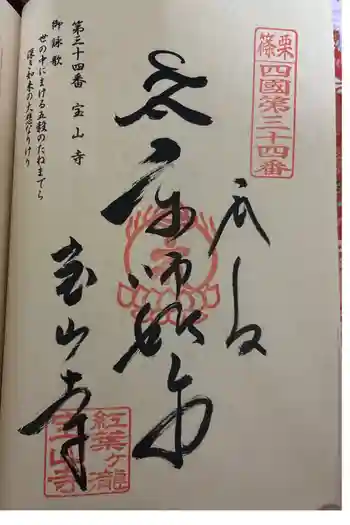 篠栗
四國第三十四番
奉拝
薬師如来
宝山寺
紅葉ヶ瀧
宝山寺
第三十四番 宝山寺
御詠歌
世の中にまける五穀のたねまでら
深き如来の大悲なりけり